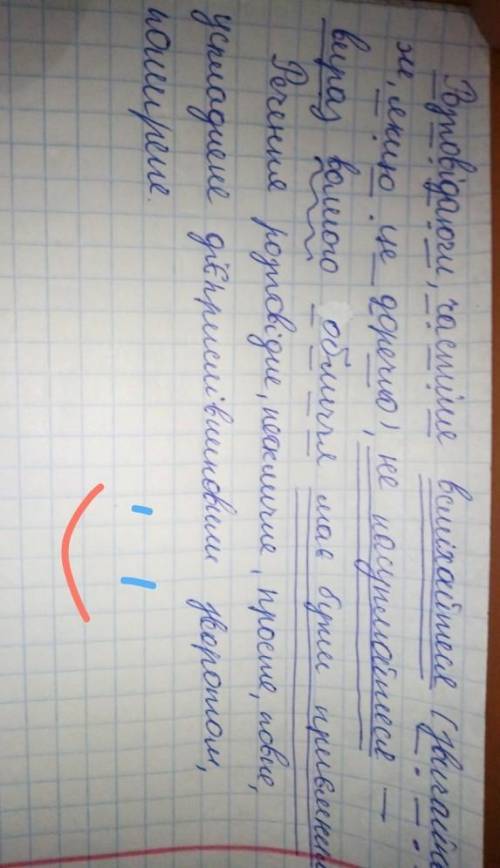 Розповідаючи, частіше всміхайтеся (звичайно
же, якщо це доречно), не насуплюйтеся —
вираз вашого обличчя має бути привітним
Речення розповідне, неокличне, просте, повне,
ускладнене дієприслівниковим зворотом,
поширене.